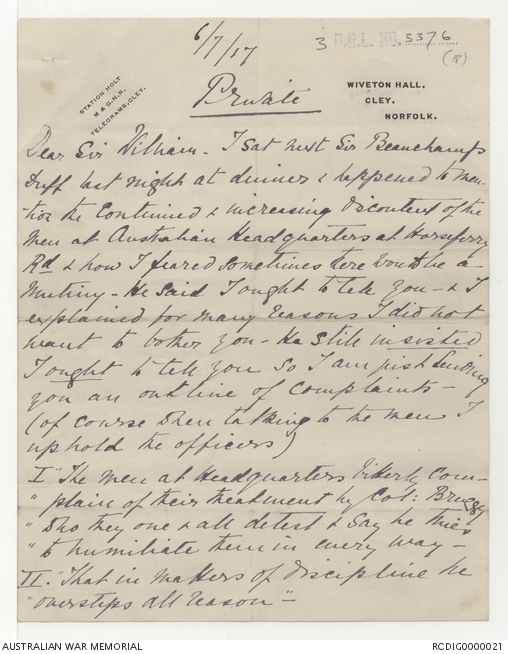 6/7/17
3 D.R.L. No. 3376
(18)
STATION HOLT
M & G.N.R.
TELEGRAMS, CLEY.
Private
WIVETON HALL,
CLEY,
NORFOLK.
Dear Sir William - I sat next Sir Beauchamp
Duff last night at dinner & happened to men-
tion the continued & increasing discontent of the
men at Australian Headquarters at Horseferry
Rd & how I feared sometimes there would be a
mutiny - He said I ought to tell you - & I
explained for many reasons I did not
want to bother you - He still insisted
I ought to tell you so I am just sending
you an outline of complaints -
(of course when talking to the men I
uphold the officers)
I "The men at Headquarters bitterly com-
" plain of their treatment by Col: Bruggy
" Who they one & all detest & say he tries
" to humiliate them in every way -
II. "That in matters of discipline he
"oversteps all reason" -
AUSTRALIAN WAR MEMORIAL
RCDIG0000021